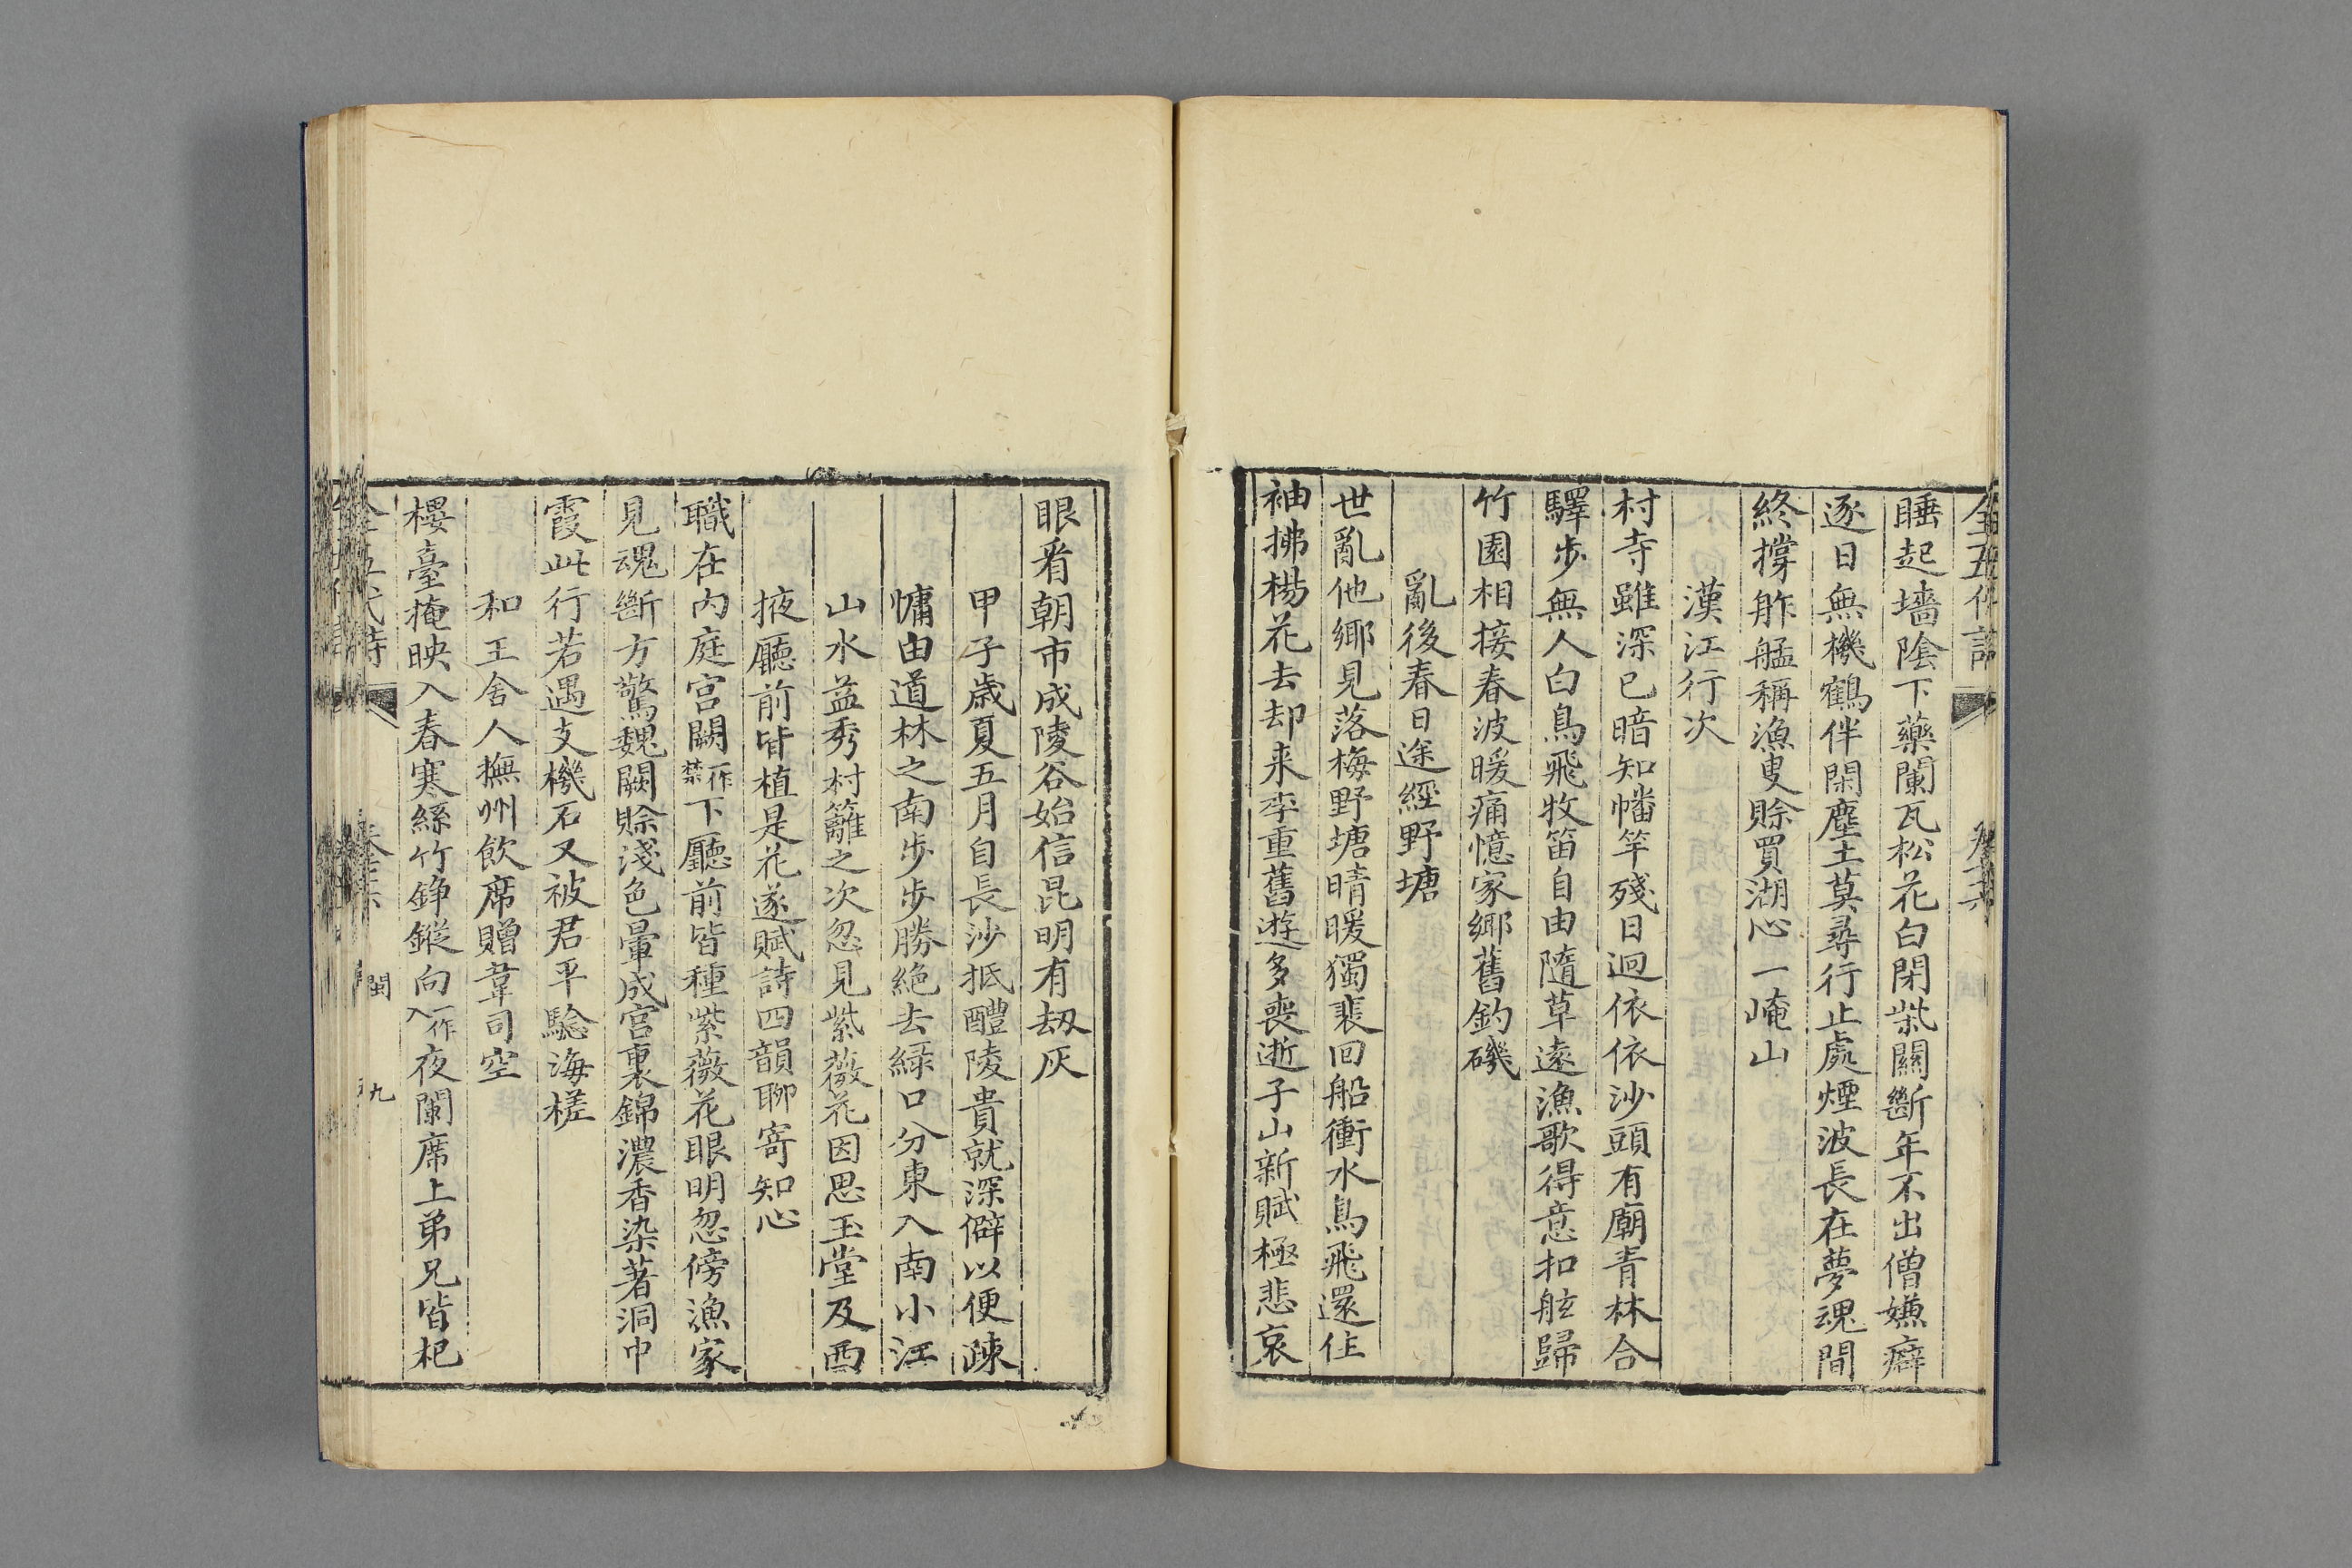 全五代詩
睡起墻陰下藥闌瓦松花白閉柴關斷年不出僧嫌癖
逐日無機鶴伴閑塵土莫尋行止處煙波長在夢魂間
終撐舴艋稱漁叟賒買湖心一崦山
漢江行次
村寺雖深已暗知幡竿殘日迥依依沙頭有廟青林合
驛步無人白鳥飛牧笛自由隨草遠漁歌得意扣舷歸
竹園相接春波暖痛憶家鄉舊釣磯
亂後春日途經野塘
世亂他鄉見落梅野塘晴暖獨裵回船衝水鳥飛還住
袖拂楊花去却来季重舊遊多喪逝子山新賦極悲哀
眼看朝市成陵谷始信昆明有刼灰
甲子歲夏五月自長沙抵醴陵貴就深僻以便疎
慵由道林之南步步勝絶去綠口分東入南小江
山水益秀村籬之次忽見紫薇花因思玉堂及西
掖廳前皆植是花遂賦詩四韻聊寄知心
職在內庭宮闕一作禁下廳前皆種紫薇花眼明忽傍漁家
見魂斷方驚魏闕賒淺色暈成宮裏錦濃香染著洞中
霞此行若遇支機石又被君平驗海槎
和王舍人撫州飲席贈韋司空
樓臺掩映入春寒絲竹錚鏦向一作入夜闌席上弟兄皆杞
全五代詩
閩
九